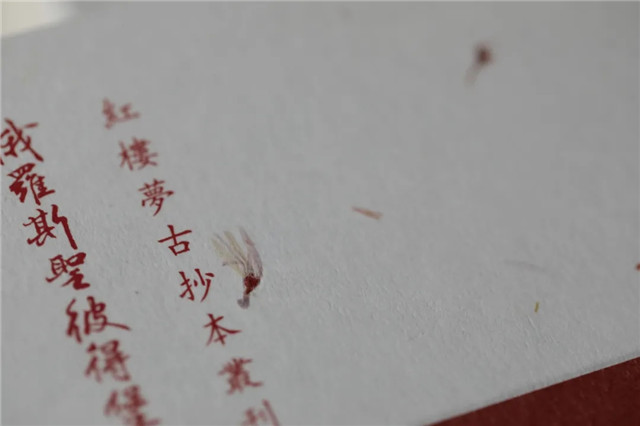 紅樓夢古抄本叢刊
俄羅斯聖彼得堡